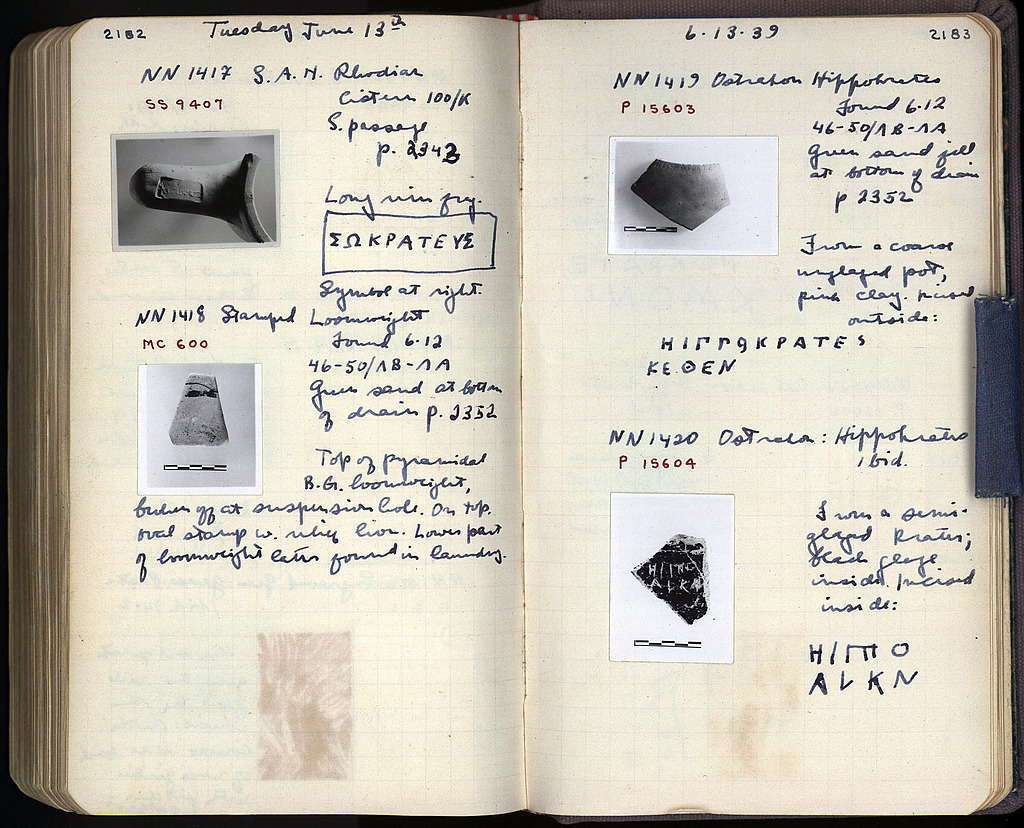 2182
Tuesday June 13th
NN 1417 S.A.H. Rhodian
SS 9407
Cistern 100/K
S. passage
p. 2342
Long rim frg.
ΣΩΚΡΑΤΕΥΣ
Symbol at right.
NN 1418 Stamped Loomweight
MC 600
Found 6-12
46-50/ΛΒ-ΛΑ
Green sand at bottom
of drain p. 2352
Top of pyramidal
B.G. loomweight,
broken off at suspension hole. On top,
oval stamp w. relief lion. Lower part
of loomweight later found in laundry.
6-13-39
2183
NN 1419 Ostrakon Hippokrates
P 15603
Found 6-12
46-50/ΛΒ-ΛΑ
Green sand fill
at bottom of drain
p 2352
From a coarse
unglazed pot,
pink clay. Incised
outside:
ΗΙΠΠΟΚΡΑΤΕS
ΚΕΘΕΝ
NN 1420 Ostrakon: Hippokrates
P 15604
ibid.
From a semi-
glazed krater;
black glaze
inside. Incised
inside:
ΗΙΠΠΟ
ΑLΚΝ